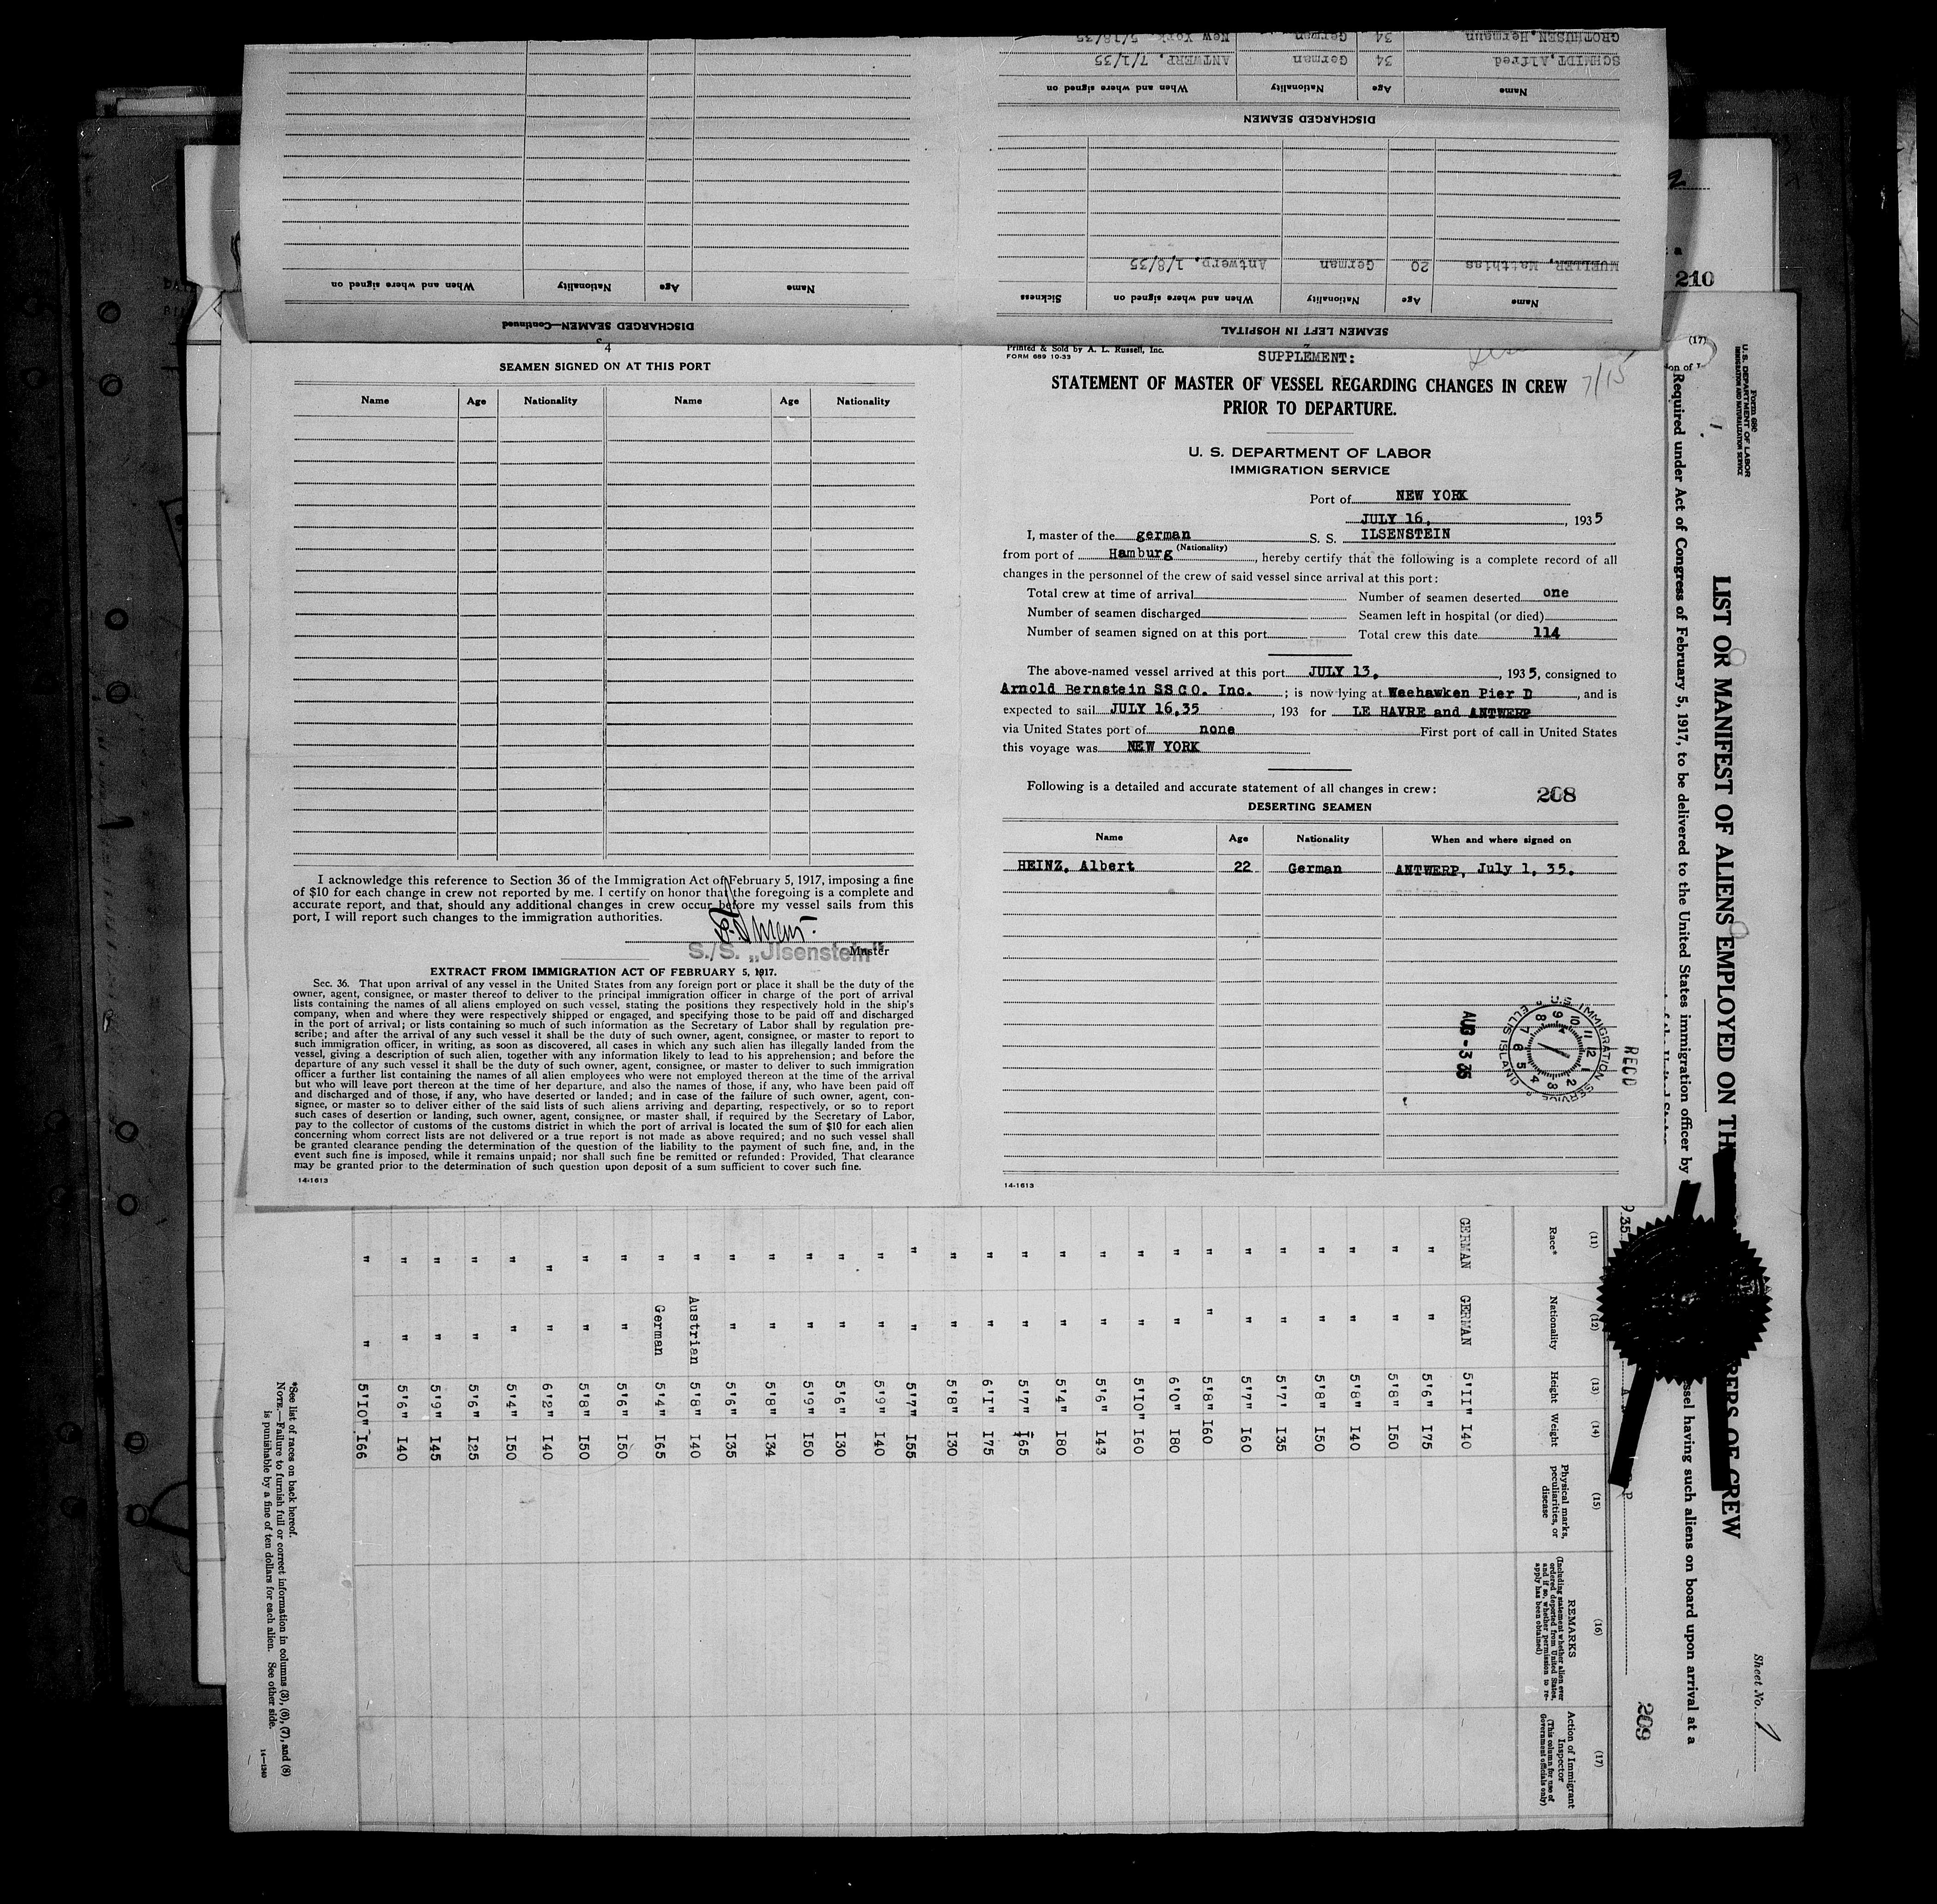 DISCHARGED SEAMEN—Continued
Name Age Nationality When and where signed on
SEAMEN LEFT IN HOSPITAL
Name Age Nationality When and where signed on Sickness
MUELLER, Matthias 20 German Antwerp, 1/8/35
DISCHARGED SEAMEN
Name Age Nationality When and where signed on
SCHMIDT,Alfred 34 German ANTWERP, 7/1/35
GROTHUSEN,Hermann 34 German New York 5/18/35
210
4
SEAMEN SIGNED ON AT THIS PORT
Name Age Nationality Name Age Nationality
I acknowledge this reference to Section 36 of the Immigration Act of February 5, 1917, imposing a fine
of $10 for each change in crew not reported by me. I certify on honor that the foregoing is a complete and
accurate report, and that, should any additional changes in crew occur before my vessel sails from this
port, I will report such changes to the immigration authorities.
S./S. „Jlsenstein"
Master
EXTRACT FROM IMMIGRATION ACT OF FEBRUARY 5, 1917.
Sec. 36. That upon arrival of any vessel in the United States from any foreign port or place it shall be the duty of the
owner, agent, consignee, or master thereof to deliver to the principal immigration officer in charge of the port of arrival
lists containing the names of all aliens employed on such vessel, stating the positions they respectively hold in the ship's
company, when and where they were respectively shipped or engaged, and specifying those to be paid off and discharged
in the port of arrival; or lists containing so much of such information as the Secretary of Labor shall by regulation pre-
scribe; and after the arrival of any such vessel it shall be the duty of such owner, agent, consignee, or master to report to
such immigration officer, in writing, as soon as discovered, all cases in which any such alien has illegally landed from the
vessel, giving a description of such alien, together with any information likely to lead to his apprehension; and before the
departure of any such vessel it shall be the duty of such owner, agent, consignee, or master to deliver to such immigration
officer a further list containing the names of all alien employees who were not employed thereon at the time of the arrival
but who will leave port thereon at the time of her departure, and also the names of those, if any, who have been paid off
and discharged and of those, if any, who have deserted or landed; and in case of the failure of such owner, agent, con-
signee, or master so to deliver either of the said lists of such aliens arriving and departing, respectively, or so to report
such cases of desertion or landing, such owner, agent, consignee, or master shall, if required by the Secretary of Labor,
pay to the collector of customs of the customs district in which the port of arrival is located the sum of $10 for each alien
concerning whom correct lists are not delivered or a true report is not made as above required; and no such vessel shall
be granted clearance pending the determination of the question of the liability to the payment of such fine, and, in the
event such fine is imposed, while it remains unpaid; nor shall such fine be remitted or refunded: Provided, That clearance
may be granted prior to the determination of such question upon deposit of a sum sufficient to cover such fine.
14-1613
Printed & Sold by A. L. Russell, Inc.
FORM 689 10-33
SUPPLEMENT:
7/15
STATEMENT OF MASTER OF VESSEL REGARDING CHANGES IN CREW
PRIOR TO DEPARTURE.
U. S. DEPARTMENT OF LABOR
IMMIGRATION SERVICE
Port of NEW YORK
JULY 16, , 1935
I, master of the german S. S. ILSENSTEIN
(Nationality)
from port of Hamburg , hereby certify that the following is a complete record of all
changes in the personnel of the crew of said vessel since arrival at this port:
Total crew at time of arrival Number of seamen deserted one
Number of seamen discharged Seamen left in hospital (or died)
Number of seamen signed on at this port Total crew this date 114
The above-named vessel arrived at this port JULY 13, , 1935, consigned to
Arnold Bernstein SSCO. Inc. ; is now lying at Weehawken Pier D , and is
expected to sail JULY 16,35 , 193 for LE HAVRE and ANTWERP
via United States port of none First port of call in United States
this voyage was NEW YORK
Following is a detailed and accurate statement of all changes in crew:
208
DESERTING SEAMEN
Name Age Nationality When and where signed on
HEINZ, Albert 22 German ANTWERP, July 1, 35.
RECD
U.S. IMMIGRATION SERVICE
ELLIS ISLAND
12 1 2 3 4 5 6 7 8 9 10 11
AUG-3 35
14-1613
Form 680
U. S. DEPARTMENT OF LABOR
IMMIGRATION AND NATURALIZATION SERVICE
Sheet No. 7
LIST OR MANIFEST OF ALIENS EMPLOYED ON TH
BERS OF CREW
Required under Act of Congress of February 5, 1917, to be delivered to the United States immigration officer by
ssel having such aliens on board upon arrival at a
209
(17)
(11) (12) (13) (14) (15) (16) (17)
Race* Nationality Height Weight Physical marks, peculiarities, or disease
REMARKS
(Including statement whether alien ever ordered deported from United States, and if so, whether permission to re-apply has been obtained)
Action of Immigrant Inspector
(This column for use of Government officials only)
GERMAN GERMAN 5'11" 140
" " 5'6" 175
" " 5'8" 150
" " 5'8" 140
" " 5'8" 150
" " 5'7" 135
" " 5'7" 160
" " 5'8" 160
" " 6'0" 180
" " 5'10" 160
" " 5'6" 143
" " 5'4" 180
" " 5'7" 165
" " 6'1" 175
" " 5'8" 130
" " 5'7" 155
" " 5'9" 140
" " 5'6" 130
" " 5'9" 150
" " 5'8" 134
" " 5'6" 135
" Austrian 5'8" 140
" German 5'4" 165
" " 5'6" 150
" " 5'8" 150
" " 6'2" 140
" " 5'4" 150
" " 5'6" 125
" " 5'9" 145
" " 5'6" 140
" " 5'10" 166
*See list of races on back hereof.
NOTE.—Failure to furnish full or correct information in columns (3), (6), (7), and (8)
is punishable by a fine of ten dollars for each alien. See other side.
14—1240